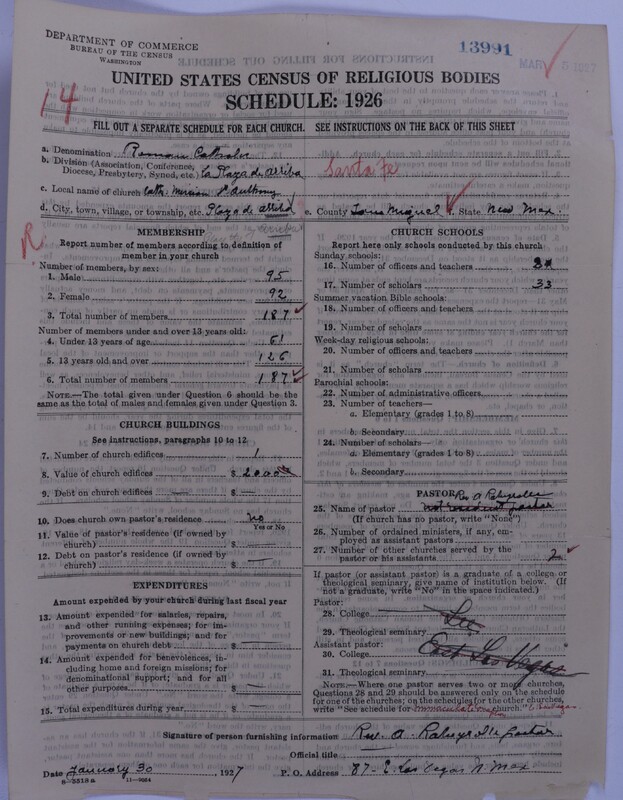 DEPARTMENT OF COMMERCE
BUREAU OF THE CENSUS
WASHINGTON
13991
MAR 5 1927
UNITED STATES CENSUS OF RELIGIOUS BODIES
SCHEDULE: 1926
14
FILL OUT A SEPARATE SCHEDULE FOR EACH CHURCH. SEE INSTRUCTIONS ON THE BACK OF THIS SHEET
a. Denomination Roman Catholic
b. Division (Association, Conference, Diocese, Presbytery, Synod, etc. La Plaza de arriba
Santa Fe
c. Local name of church Cath. Mission St. Anthony
d. City, town, village, or township, etc. Plaza de arriba e. County San Miguel f. State New Mex.
R.
MEMBERSHIP
Report number of members according to definition of member in your church
Number of members, by sex:
1. Male 95
2. Female 92
3. Total number of members 187
Number of members under and over 13 years old:
4. Under 13 years of age 61
5. 13 years old and over 126
6. Total number of members 187
NOTE.—The total given under Question 6 should be the same as the total of males and females given under Question 3.
CHURCH BUILDINGS
See instructions, paragraphs 10 to 12.
7. Number of church edifices 1
8. Value of church edifices $ 2000
9. Debt on church edifices — $ —
10. Does church own pastor's residence no
Yes or No
11. Value of pastor's residence (if owned by church) $ —
12. Debt on pastor's residence (if owned by church) $ —
EXPENDITURES
Amount expended by your church during last fiscal year
13. Amount expended for salaries, repairs, and other running expenses; for improvements or new buildings; and for payments on church debt $ —
14. Amount expended for benevolences, including home and foreign missions; for denominational support; and for all other purposes $ —
15. Total expenditures during year $ —
CHURCH SCHOOLS
Report here only schools conducted by this church
Sunday schools:
16. Number of officers and teachers
17. Number of scholars 33
Summer vacation Bible schools:
18. Number of officers and teachers
19. Number of scholars
Week-day religious schools:
20. Number of officers and teachers
21. Number of scholars
Parochial schools:
22. Number of administrative officers
23. Number of teachers—
a. Elementary (grades 1 to 8)
b. Secondary
24. Number of scholars—
a. Elementary (grades 1 to 8)
b. Secondary
PASTOR
25. Name of pastor Rev. A
not resident pastor
(If church has no pastor, write "None")
26. Number of ordained ministers, if any, employed as assistant pastors
27. Number of other churches served by the pastor or his assistants 2
If pastor (or assistant pastor) is a graduate of a college or theological seminary, give name of institution below. (If not a graduate, write "No" in the space indicated.)
Pastor:
28. College See
29. Theological seminary
Assistant pastor:
30. College East Las Vegas
31. Theological seminary
NOTE:—Where one pastor serves two or more churches, Questions 28 and 29 should be answered only on the schedule for one of the churches; on the schedules for the other churches, write "See schedule for Immaculate church."
Signature of person furnishing information Rev. A. pastor
Official title
Date January 30 1927 P. O. Address E. Las Vegas N. Mex
8-2518a 11-9064